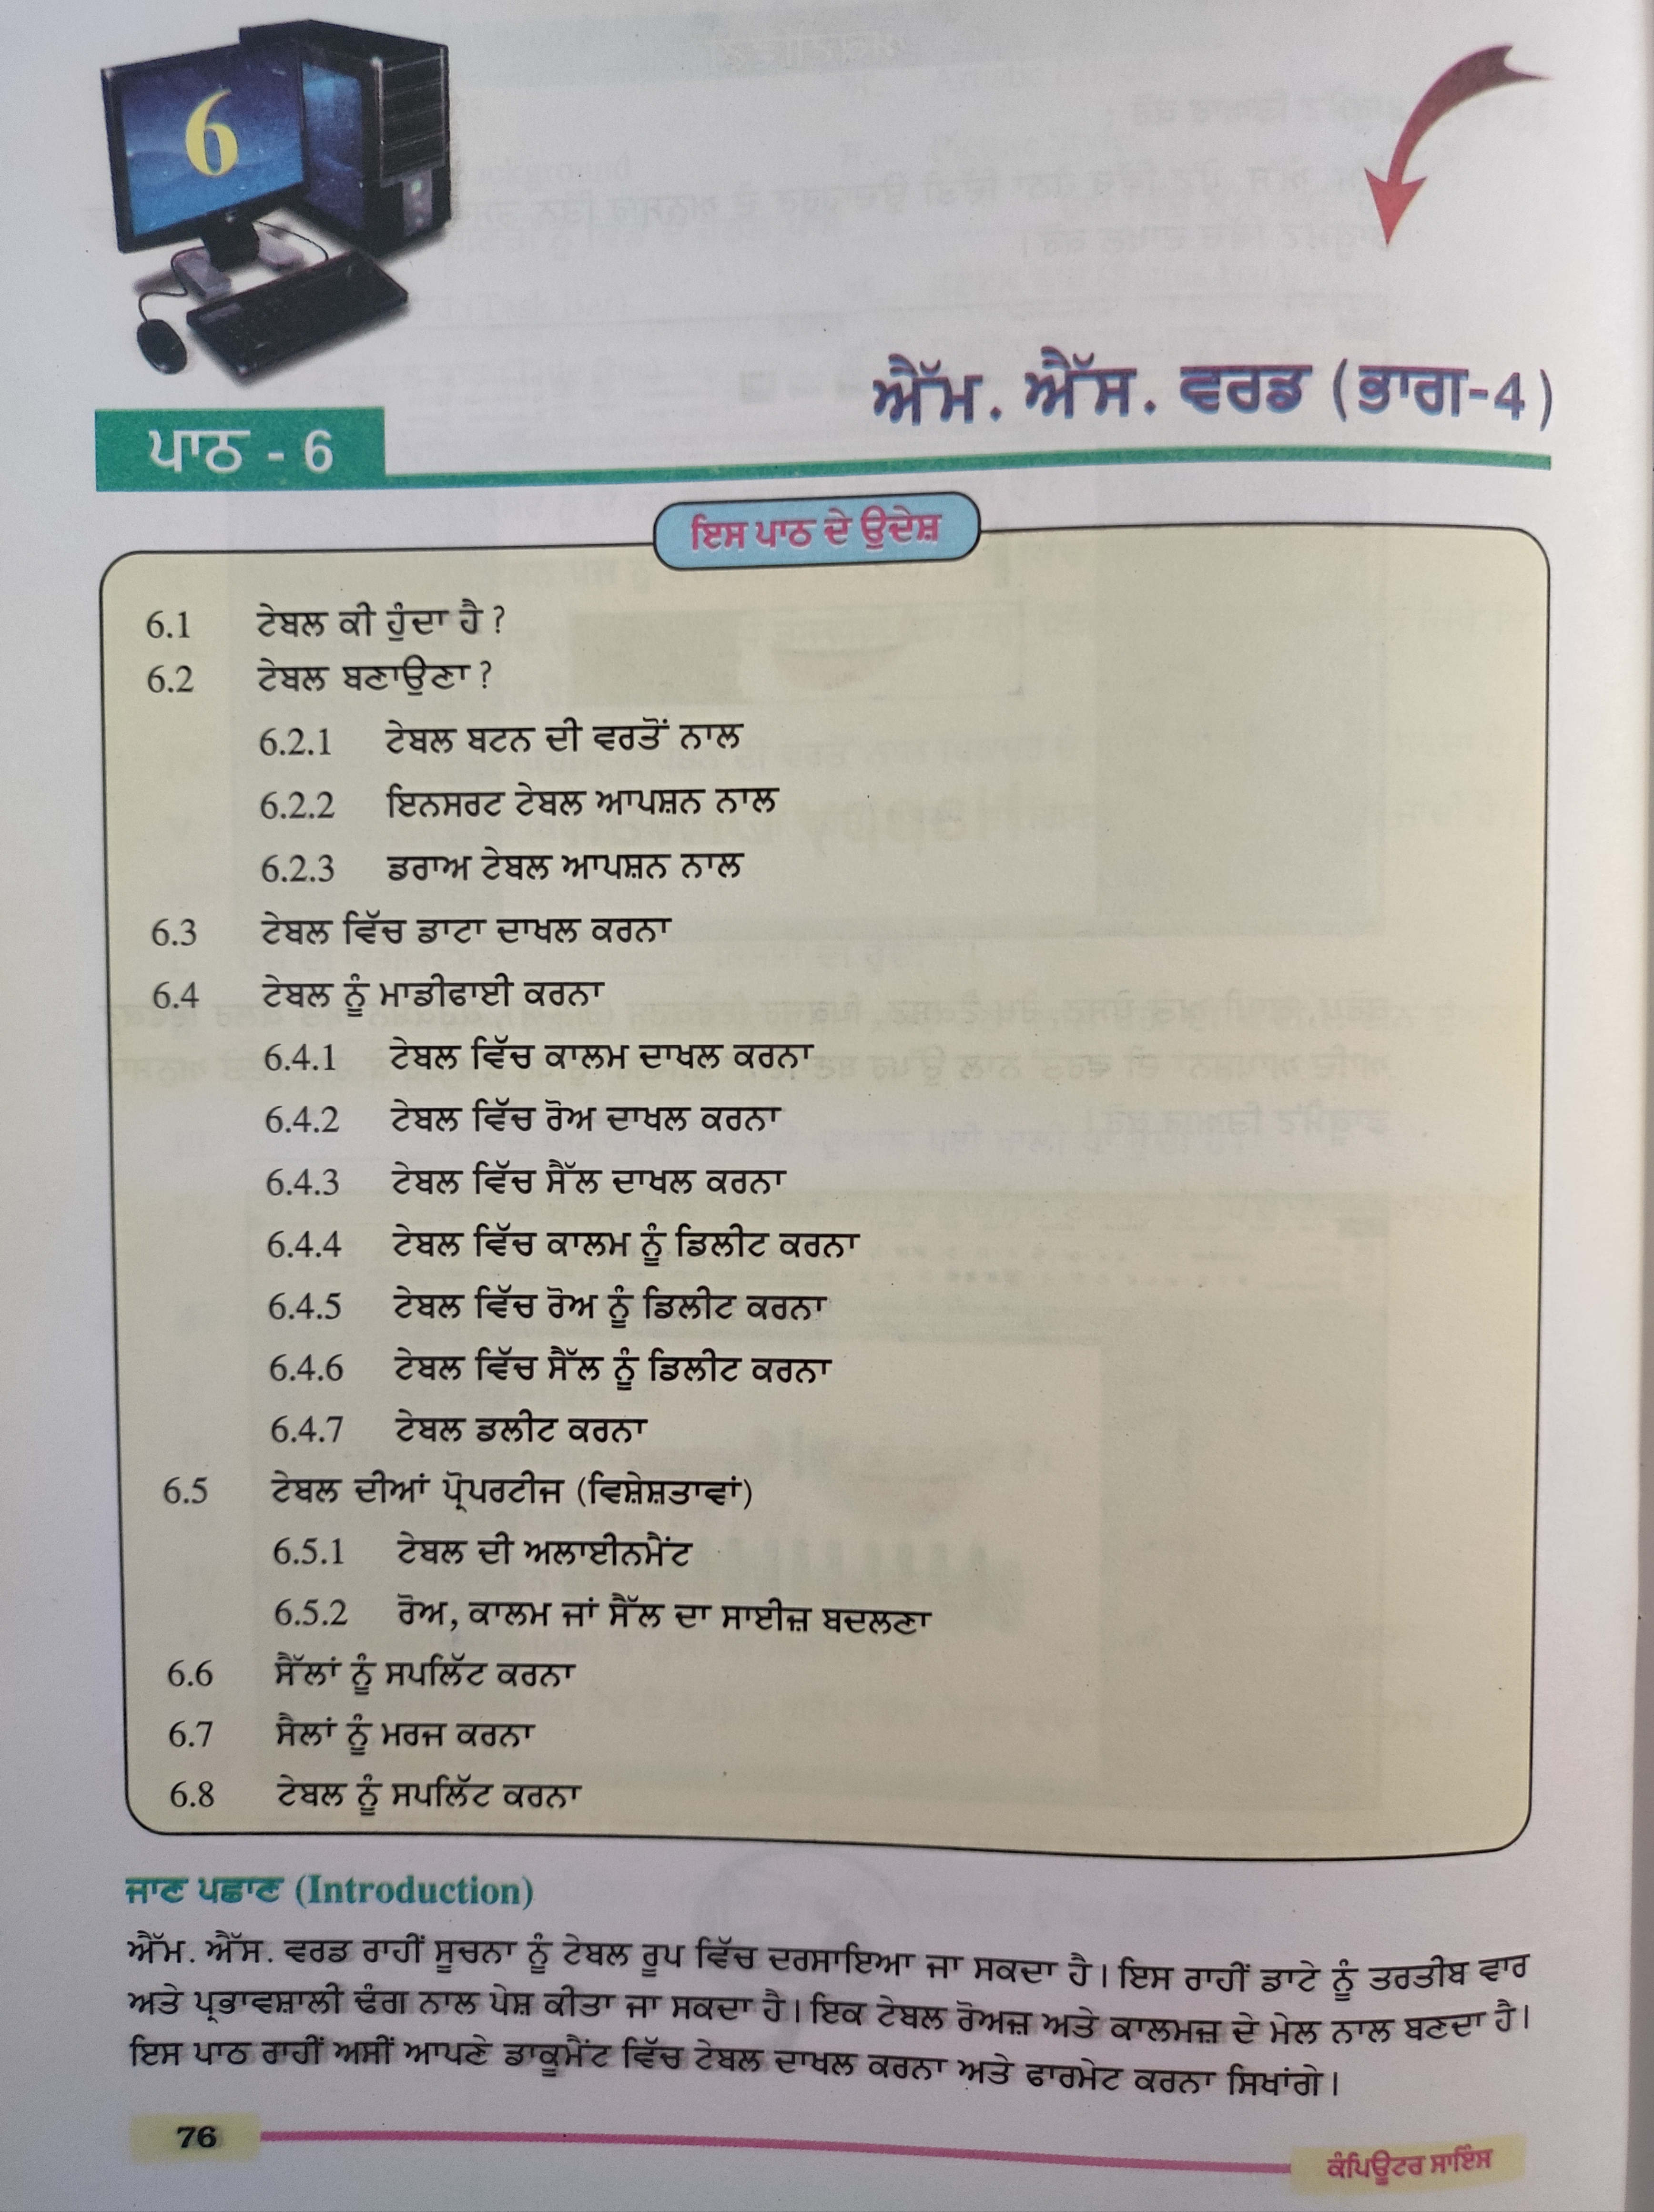 6
ਐੱਮ. ਐੱਸ. ਵਰਡ (ਭਾਗ-4)
ਪਾਠ - 6
ਇਸ ਪਾਠ ਦੇ ਉਦੇਸ਼
6.1 ਟੇਬਲ ਕੀ ਹੁੰਦਾ ਹੈ?
6.2 ਟੇਬਲ ਬਣਾਉਣਾ?
6.2.1 ਟੇਬਲ ਬਟਨ ਦੀ ਵਰਤੋਂ ਨਾਲ
6.2.2 ਇਨਸਰਟ ਟੇਬਲ ਆਪਸ਼ਨ ਨਾਲ
6.2.3 ਡਰਾਅ ਟੇਬਲ ਆਪਸ਼ਨ ਨਾਲ
6.3 ਟੇਬਲ ਵਿੱਚ ਡਾਟਾ ਦਾਖਲ ਕਰਨਾ
6.4 ਟੇਬਲ ਨੂੰ ਮਾਡੀਫਾਈ ਕਰਨਾ
6.4.1 ਟੇਬਲ ਵਿੱਚ ਕਾਲਮ ਦਾਖਲ ਕਰਨਾ
6.4.2 ਟੇਬਲ ਵਿੱਚ ਰੋਅ ਦਾਖਲ ਕਰਨਾ
6.4.3 ਟੇਬਲ ਵਿੱਚ ਸੈੱਲ ਦਾਖਲ ਕਰਨਾ
6.4.4 ਟੇਬਲ ਵਿੱਚ ਕਾਲਮ ਨੂੰ ਡਿਲੀਟ ਕਰਨਾ
6.4.5 ਟੇਬਲ ਵਿੱਚ ਰੋਅ ਨੂੰ ਡਿਲੀਟ ਕਰਨਾ
6.4.6 ਟੇਬਲ ਵਿੱਚ ਸੈੱਲ ਨੂੰ ਡਿਲੀਟ ਕਰਨਾ
6.4.7 ਟੇਬਲ ਡਲੀਟ ਕਰਨਾ
6.5 ਟੇਬਲ ਦੀਆਂ ਪ੍ਰੋਪਰਟੀਜ (ਵਿਸ਼ੇਸ਼ਤਾਵਾਂ)
6.5.1 ਟੇਬਲ ਦੀ ਅਲਾਈਨਮੈਂਟ
6.5.2 ਰੋਅ, ਕਾਲਮ ਜਾਂ ਸੈੱਲ ਦਾ ਸਾਈਜ਼ ਬਦਲਣਾ
6.6 ਸੈੱਲਾਂ ਨੂੰ ਸਪਲਿੱਟ ਕਰਨਾ
6.7 ਸੈਲਾਂ ਨੂੰ ਮਰਜ ਕਰਨਾ
6.8 ਟੇਬਲ ਨੂੰ ਸਪਲਿੱਟ ਕਰਨਾ
ਜਾਣ ਪਛਾਣ (Introduction)
ਐੱਮ. ਐੱਸ. ਵਰਡ ਰਾਹੀਂ ਸੂਚਨਾ ਨੂੰ ਟੇਬਲ ਰੂਪ ਵਿੱਚ ਦਰਸਾਇਆ ਜਾ ਸਕਦਾ ਹੈ। ਇਸ ਰਾਹੀਂ ਡਾਟੇ ਨੂੰ ਤਰਤੀਬ ਵਾਰ
ਅਤੇ ਪ੍ਰਭਾਵਸ਼ਾਲੀ ਢੰਗ ਨਾਲ ਪੇਸ਼ ਕੀਤਾ ਜਾ ਸਕਦਾ ਹੈ। ਇਕ ਟੇਬਲ ਰੋਅਜ਼ ਅਤੇ ਕਾਲਮਜ਼ ਦੇ ਮੇਲ ਨਾਲ ਬਣਦਾ ਹੈ।
ਇਸ ਪਾਠ ਰਾਹੀਂ ਅਸੀਂ ਆਪਣੇ ਡਾਕੂਮੈਂਟ ਵਿੱਚ ਟੇਬਲ ਦਾਖਲ ਕਰਨਾ ਅਤੇ ਫਾਰਮੇਟ ਕਰਨਾ ਸਿਖਾਂਗੇ।
76
ਕੰਪਿਊਟਰ ਸਾਇੰਸ